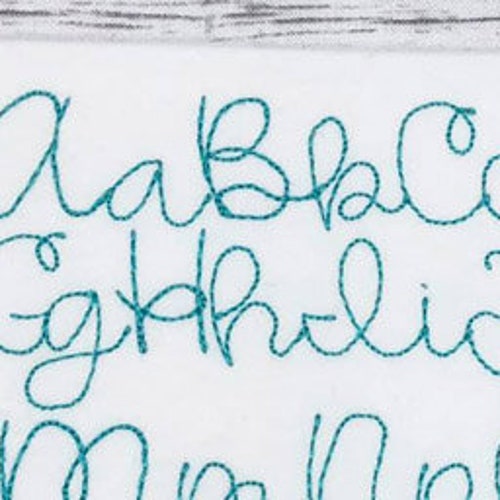 AaBbC
GgHhIi
MmNn